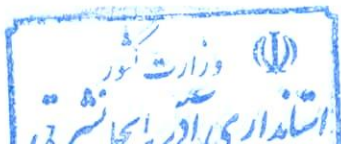 وزارت کشور
استانداری آذربایجان شرقی